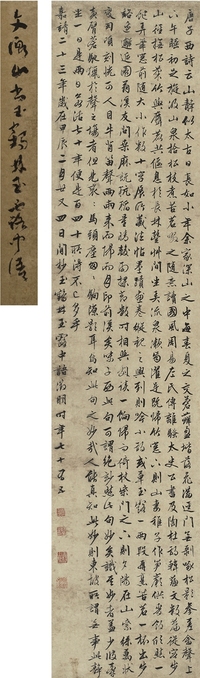 文衡山書玉鶴林玉露中語
唐子西詩云山靜似太古日長如小年余家深山之中每春夏之交蒼蘚盈堦落花滿逕門無剝啄松影參差禽聲上
下午睡初足旋汲山泉拾松枝煮苦茗啜之隨意讀國風周易左氏傳離騷太史公書及陶杜詩韓蘇文數篇從容步
山徑撫松竹與麛犢共偃息於長林豐草間坐弄流泉漱齒濯足既歸竹窗下則山妻稚子作筍蕨供麥飯欣然一
飽弄筆窗間隨大小作數十字展所藏法帖墨蹟畫卷縱觀之興到則吟小詩或草玉露一兩段再烹苦茗一杯出步
溪邊邂逅園翁溪友問桑麻說秔稻量晴校雨探節數時相與劇談一餉歸而倚杖柴門之下則夕陽在山紫綠萬狀
變幻頃刻恍可人目牛背笛聲兩兩來歸而月印前溪矣味子西此句可謂妙絕然此句妙矣識其妙者蓋少彼牽
黃臂蒼馳獵於聲利之場者但見袞袞馬頭塵匆匆駒隙影耳烏知此句之妙哉人能真知此妙則東坡所謂無事此靜
坐一日是兩日若活七十年便是百四十所得不已多乎
嘉靖二十三年歲在甲辰二月廿又四日閒抄鶴林玉露中語徵明時年七十有五